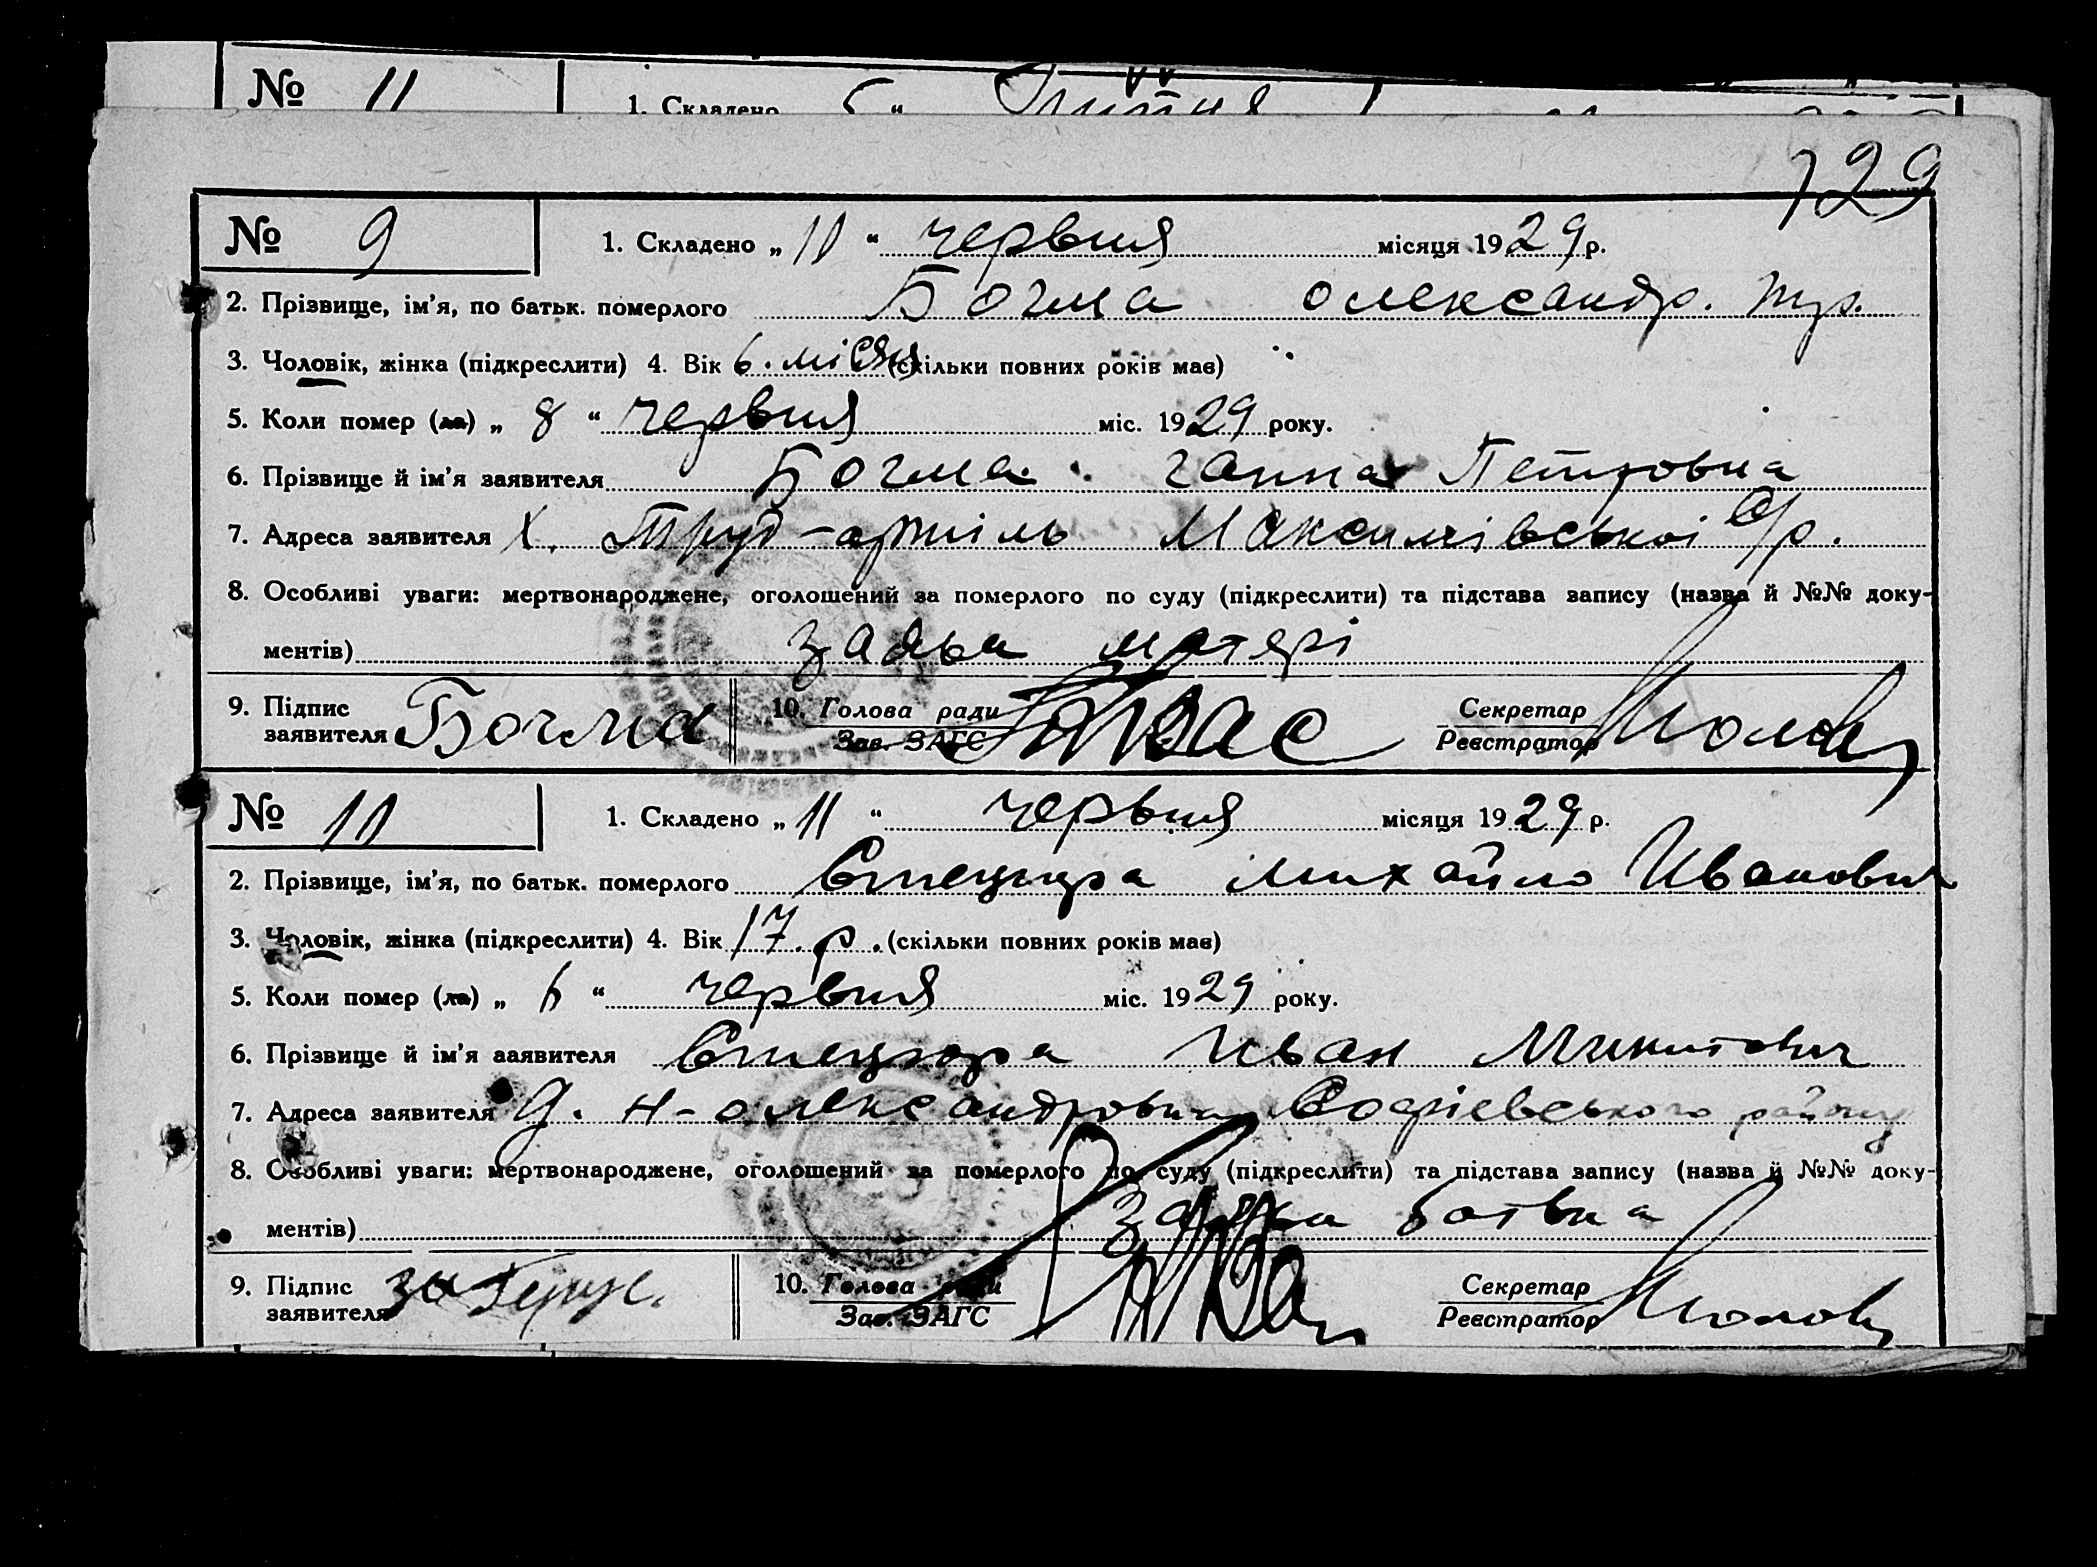 № 11
1. Складено 5 "
729
№ 9 1. Складено „ 10 " червня місяця 1929 р.
2. Прізвище, ім'я, по батьк. померлого Бочма Олександр.
3. Чоловік, жінка (підкреслити) 4. Вік 6. місяц (скільки повних років має)
5. Коли помер (ла) „ 8 " червня міс. 1929 року.
6. Прізвище й ім'я заявителя Бочма Ганна Петровна
7. Адреса заявителя х. Труд-артіль Максимівської с/р.
8. Особливі уваги: мертвонароджене, оголошений за померлого по суду (підкреслити) та підстава запису (назва й №№ доку-
ментів) заява матері
9. Підпис заявителя Бочма 10. Голова ради Зав. ЗАГС Секретар Реєстратор
№ 10 1. Складено „ 11 " червня місяця 1929 р.
2. Прізвище, ім'я, по батьк. померлого Стецюра Михайло Иванович
3. Чоловік, жінка (підкреслити) 4. Вік 17. р. (скільки повних років має)
5. Коли помер (ла) „ 6 " червня міс. 1929 року.
6. Прізвище й ім'я заявителя Стецюра Иван Микитович
7. Адреса заявителя Н-Олександровка Софіевського району
8. Особливі уваги: мертвонароджене, оголошений за померлого по суду (підкреслити) та підстава запису (назва й №№ доку-
ментів) заява батька
9. Підпис заявителя 10. Голова ради Зав. ЗАГС Секретар Реєстратор